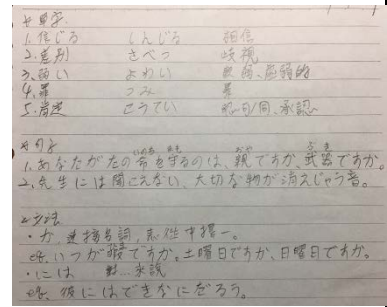 #単字.
1.信じる しんじる 相信
2.差別 さべつ 歧视
3.弱い よわい 軟弱、
4.罪 つみ 罪
5.肯定 こうてい 肯定/同、承認
#句子
1.あなたがたの命を守るのは、親ですか、武器ですか。
2.先生には聞こえない、大切な物が消えじゃう音。
文法
・か、連接名詞,
eg. いつが暇ですか。土曜日ですか、日曜日ですか。
・には 對…來說
eg. 彼にはできなにだろう。